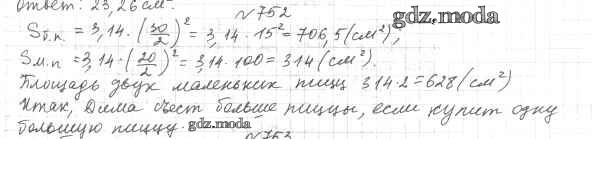 Ответ: 23,26 см².
№752
gdz.moda
Sб.п. = 3,14·(30/2)² = 3,14·15² = 706,5 (см²),
Sм.п = 3,14·(20/2)² = 3,14·100 = 314 (см²).
Площадь двух маленьких пицц 314·2=628 (см²)
Итак, Дима съест больше пиццы, если купит одну
большую пиццу.
gdz.moda
№753